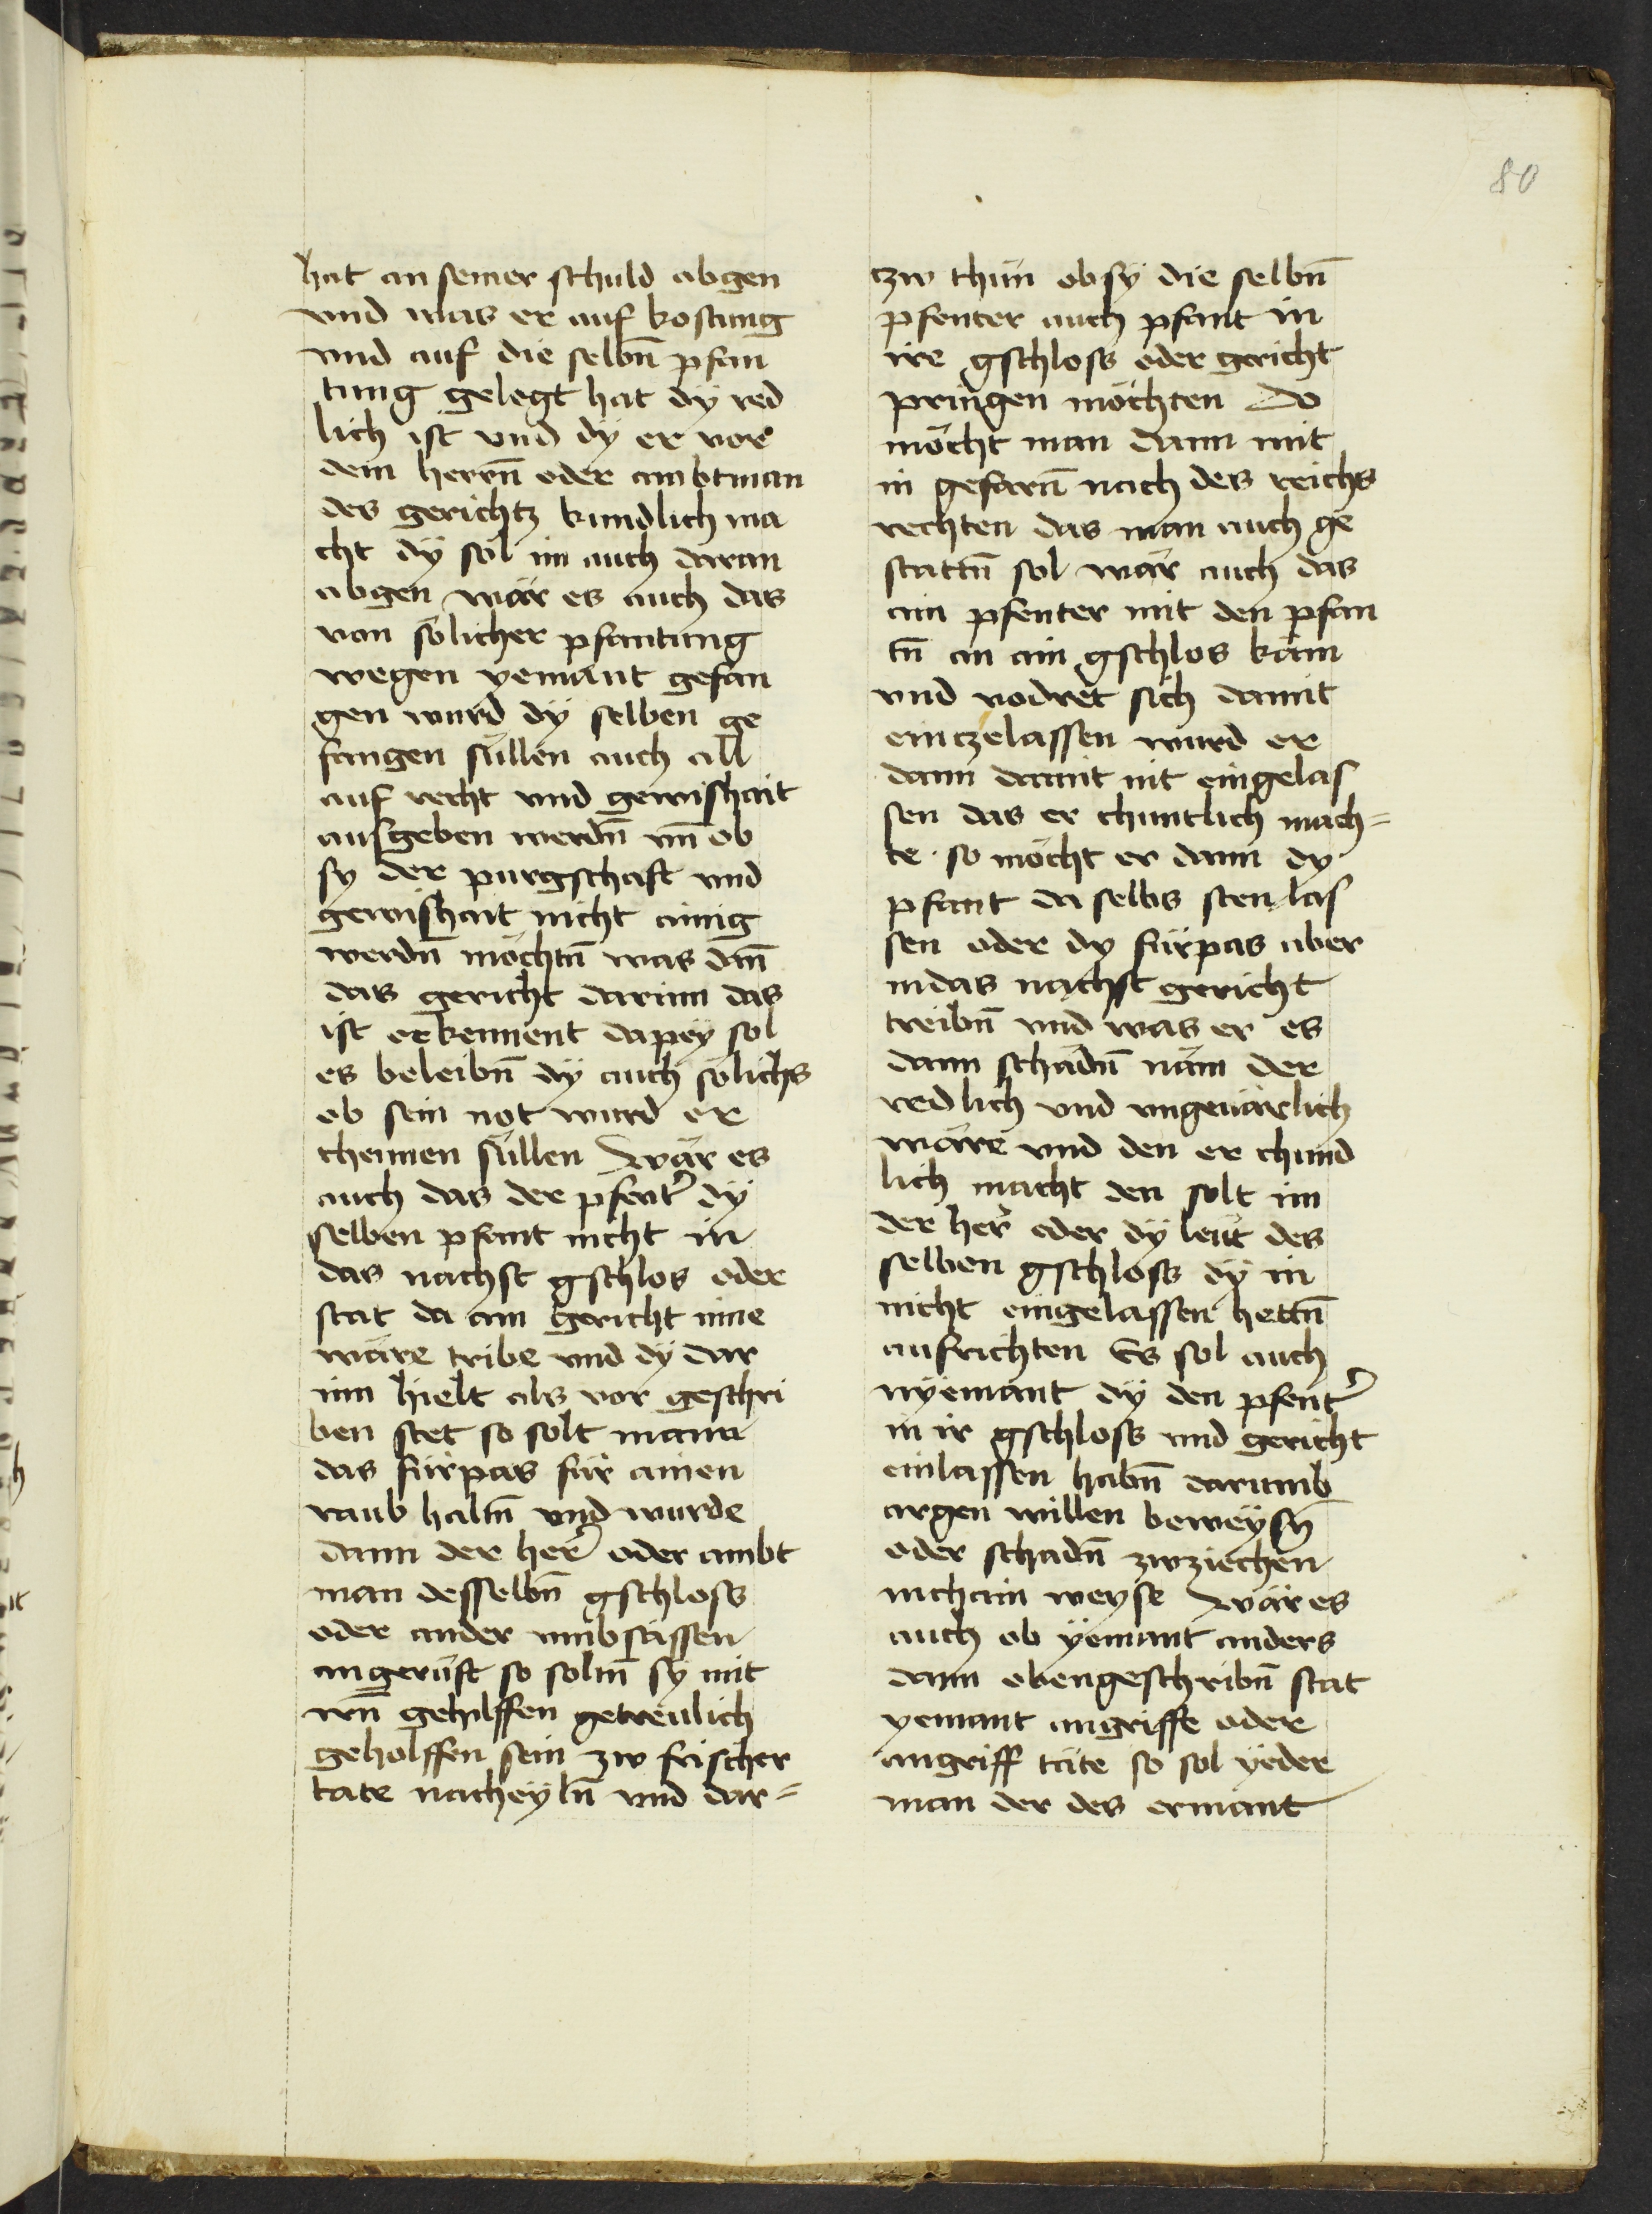 80
hat an seiner schuld abgen
vnd was er auf kostung
vnd auf die selbn̄ pfan
tung gelegt hat dÿ red
lich ist vnd dÿ er vor
dem herrn̄ oder ambtman
des gerichtz kundlich ma
cht dÿ sol im auch daran
abgen wär es auch das
von sölicher pfantung
wegen yemant gefan
gen wurd dÿ selben ge
fangen süllen auch all
auf recht vnd gewishait
ausgeben werdn̄ vn̄ ob
sy der purgschaft vnd
gewishait nicht ainig
werdn̄ möchtn̄ was dan̄
das gericht darinn das
ist erkennent dapeÿ sol
es beleibn̄ dÿ auch sölichs
ob sein not wurd er
chennen süllen wär es
auch das der pfent̓ dÿ
selben pfant nicht in
das nachst gschlos oder
stat da ain gericht inne
wäre tribe vnd dÿ dar
inn hielt als vor geschri
ben stet so solt mann
das fürpas für ainen
raub haltn̄ vnd wurde
dann der her̓ oder ambt
man desselbn̄ gschloss
oder ander vmbsässen
angerüft so soltn̄ sÿ mit
irn̄ gehilffen getreulich
geholffen sein zw frischer
tate nacheÿln̄ vnd dar=
tzw thun ob sÿ die selbn̄
pfenter auch pfant in
ire gschloss oder gericht
pringen möchten Do
möcht man dann mit
in gefarn̄ nach des reichs
rechten das man auch ge
stattn̄ sol wär auch das
ain pfenter mit den pfan
tn̄ an ain gschlos käm
vnd vodret sich damit
eintzelassen wurd er
dann damit nit eingelas
sen das er chuntlich mach=
te · so möcht er dann dy
pfant da selbs sten las
sen oder dy fürpas aber
in das nachst gericht
treibn̄ vnd was er es
dann schadn̄ näm der
redlich vnd vngeuärlich
wäre vnd den er chund
lich macht den solt im
der her̓ oder dÿ leüt des
selben gschloss dÿ in
nicht eingelassen hettn̄
aufrichten Es sol auch
nyemant dÿ den pfent̓
in ir gschloss vnd gericht
einlassen habn̄ darumb
argen willen beweÿsn̄
oder schadn̄ zwziechen
in chain weyse wär es
auch ob yemant anders
dann obengeschribn̄ stat
yemant angriffe oder
angriff täte so sol ÿeder
man der des ermant